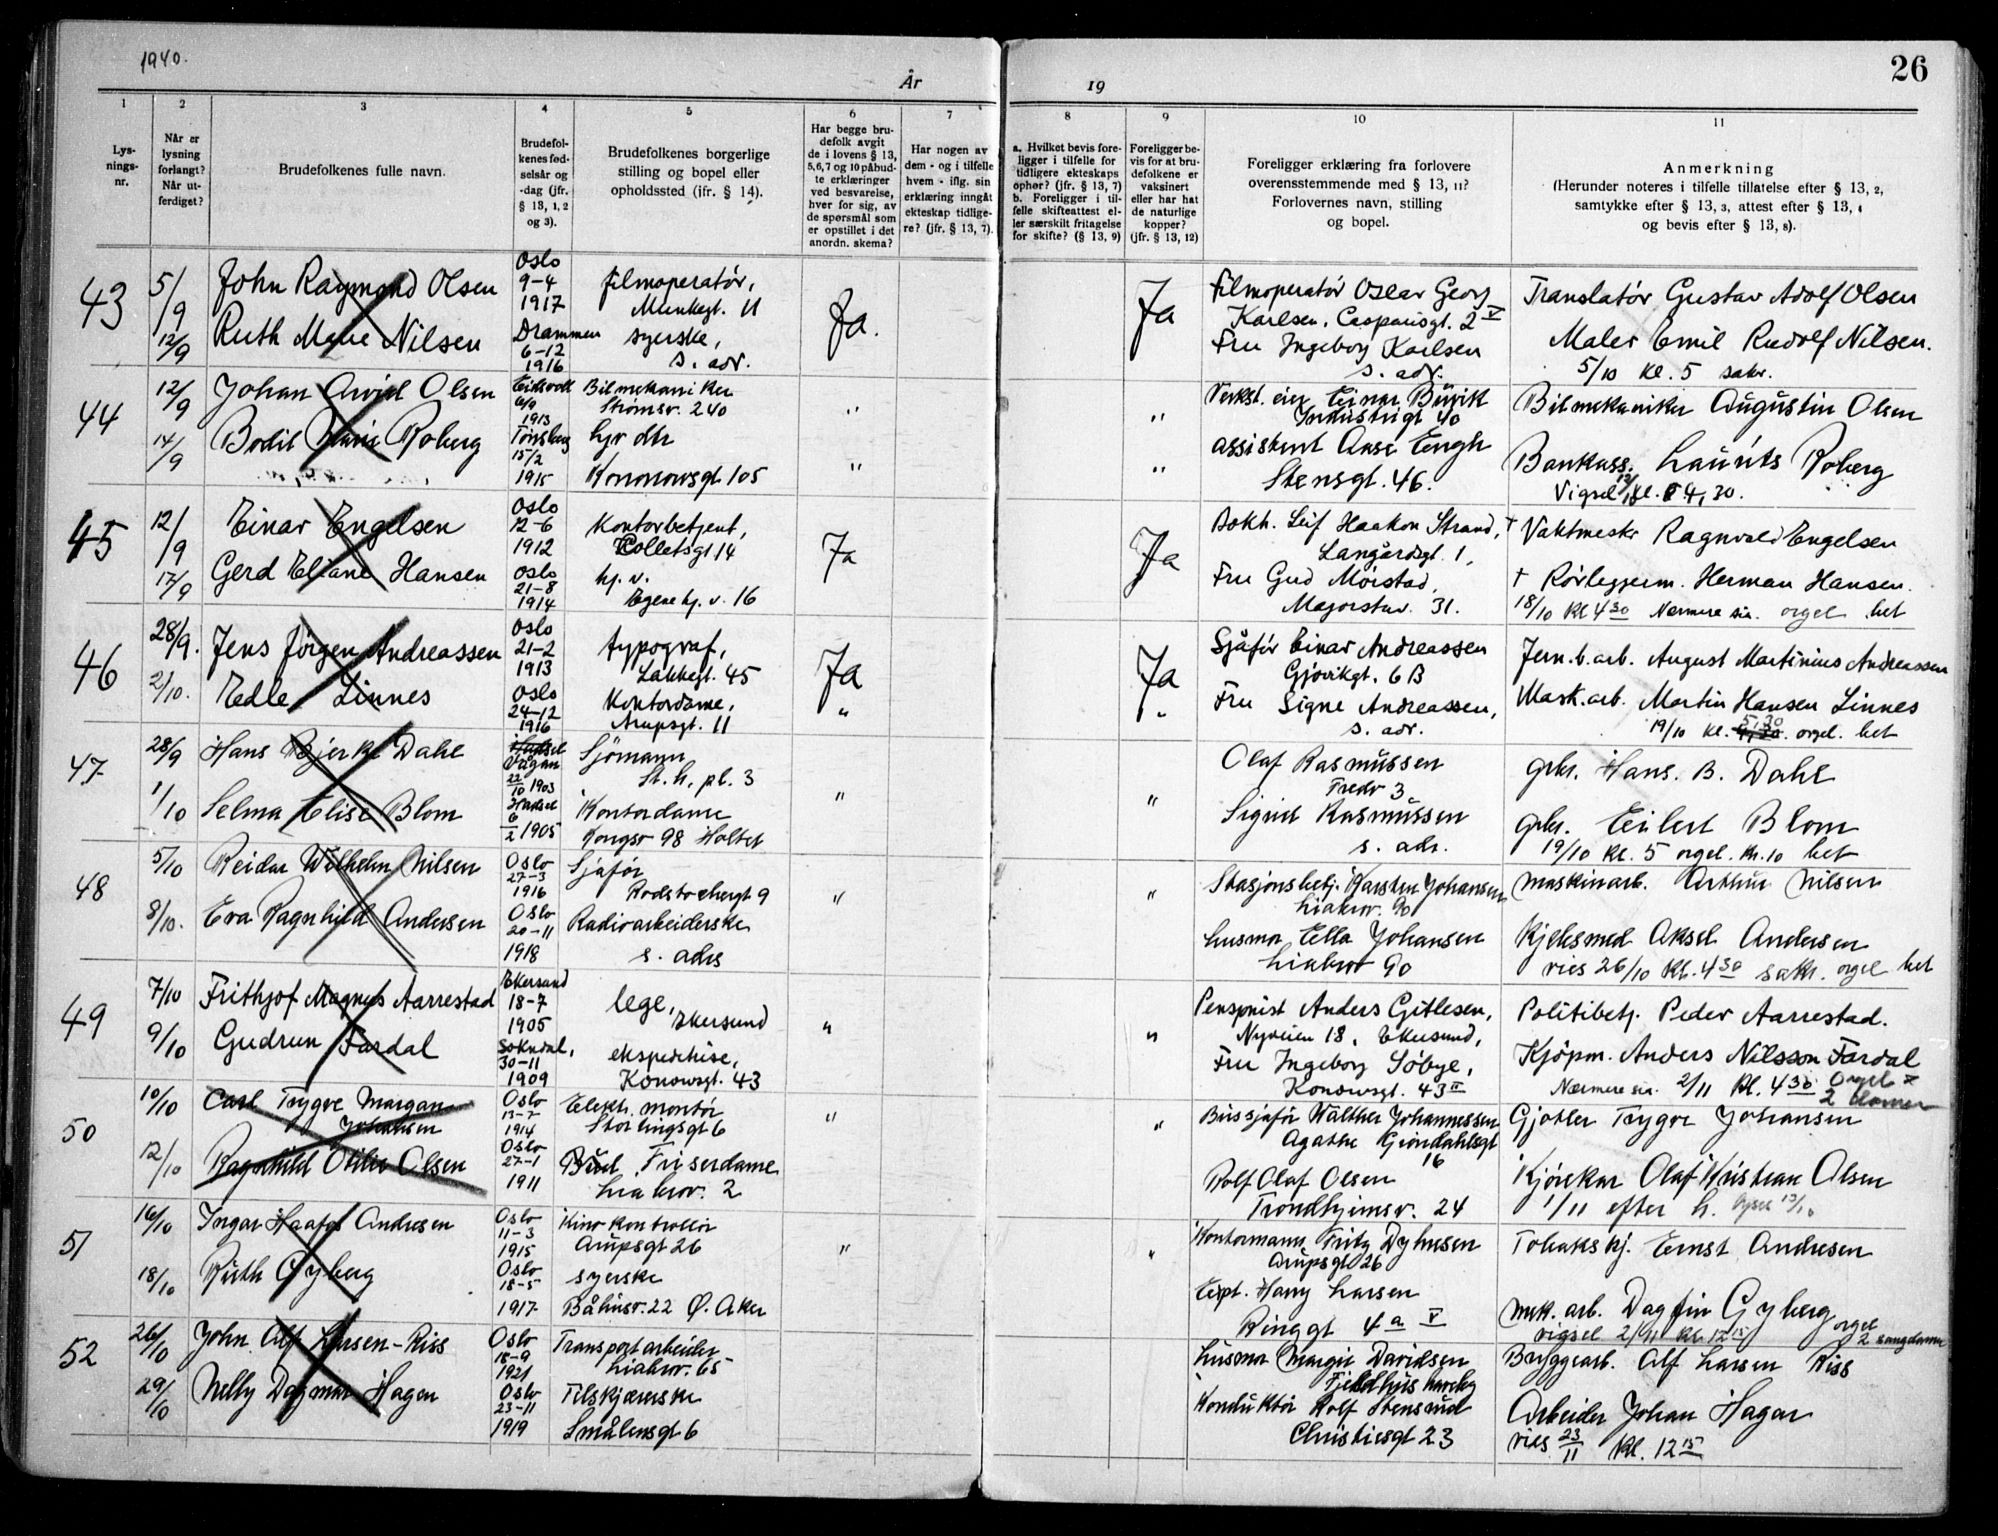 1940.
År
19
26
1
2
3
4
5
6
7
8
9
10
11
Lys-
nings-
nr.
Når er
lysning
forlangt?
Når ut-
ferdiget?
Brudefolkenes fulle navn.
Brudefol-
kenes fød-
selsår og
-dag (jfr.
§ 13, 1, 2
og 3).
Brudefolkenes borgerlige
stilling og bopel eller
opholdssted (ifr. § 14).
Har begge bru-
defolk avgit
de i lovens § 13,
5,6,7 og 10 påbud-
te erklæringer
ved besvarelse,
hver for sig, av
de spørsmål som
er opstillet i det
anordn. skema?
Har nogen av
dem - og i tilfelle
hvem - iflg. sin
erklæring inngåt
ekteskap tidlige-
re? (jfr. § 13, 7).
a. Hvilket bevis fore-
ligger i tilfelle for
tidligere ekteskaps
ophør? (jfr. § 13, 7)
b. Foreligger i til-
felle skifteattest el-
ler særskilt fritagelse
for skifte? (§ 13, 9)
Foreligger be-
vis for at bru-
defolkene er
vaksinert
eller har hat
de naturlige
kopper?
(jfr. § 13, 12)
Foreligger erklæring fra forlovere
overensstemmende med § 13, 11?
Forlovernes navn, stilling
og bopel.
Anmerkning
(Herunder noteres i tilfelle tillatelse efter § 13, 2,
samtykke efter § 13, 3, attest efter § 13, 4
og bevis efter § 13, 8).
43
5/9
12/9
John Raymond Olsen
Ruth Marie Nilsen
Oslo
9-4
1917
Drammen
6-12
1916
filmoperatør,
Munkegt. 11
syerske,
s. adr.
Ja.
Ja
Filmoperatør Oscar Georg
Karlsen, Casparisgt. 2 V
Fru Ingeborg Karlsen
s. adr.
Translatør Gustav Adolf Olsen
Maler Emil Rudolf Nilsen.
5/10 kl. 5 sakr.
44
12/9
14/9
Johan Arvid Olsen
Bodil Marie Roberg
Eidsvoll
1913
Tønsberg
15/2
1915
Bilmekaniker
Strømsv. 240
hjv dtr
Kononowsgt 105
"
"
"
"
Verkst. eier Einar Burik
Industrigt 40
assistent Aase Engh
Stensgt. 46.
Bilmekaniker Augustin Olsen
Bankass. Laurits Roberg
Vigsel 12/10 kl. 4,30.
45
12/9
17/9
Einar Engelsen
Gerd Eliane Hansen
Oslo
12-6
1912
Oslo
21-8
1914
Kontorbetjent,
Colletsgt 14
hj. v.
Egne hj. v. 16
Ja
Ja
Bokh. Leif Haakon Strand,
Langårdsgt. 1,
Fru Gud Mørstad,
Majorstuv. 31.
† Vaktmestr Ragnvald Engelsen
† Rørleggerm. Herman Hansen.
18/10 Kl 4 30 Nærmere sia. orgel bet
46
28/9.
2/10.
Jens Jørgen Andreassen
Edle Linnes
Oslo
21-2
1913
Oslo
24-12
1916
typograf,
Lakkegt. 45
Kontordame,
Arupsgt. 11
Ja
"
Ja
"
Sjåfør Einar Andreassen
Gjøvikgt. 6 B
Fru Signe Andreassen,
s. adr.
Jern.b.arb. August Martinius Andreassen
Mask.arb. Martin Hansen Linnes
5,30
19/10 kl. 4,30 orgel. bet
47
28/9
1/10
Hans Bjerke Dahl
Selma Elise Blom
Hadsel
Vågan
22/10 1903
Hadsel
6/2 1905
Sjømann
St. h. pl. 3
Kontordame
Kongsv 98 Holtet
"
"
Olaf Rasmussen
Fredr 3
Sigrid Rasmussen
s. adr.
gbr. Hans. B. Dahl
gbr. Eilert Blom
19/10 kl. 5 orgel. kr. 10 bet
48
5/10
8/10.
Reidar Wilhelm Nilsen
Eva Ragnhild Andersen
Oslo
27-3
1916
Oslo
20-11
1918
Sjåfør
Rodeløkkegt 9
Radioarbeiderske
s. adrs
"
"
Stasjonsbetj. Karsten Johansen
Liabrov. 90
husmor Ella Johansen
Liabrov 90
maskinarb. Arthur Nilsen
Kjelesmed Aksel Andersen
vies 26/10 Kl. 4 30 sakr. orgel bet
49
7/10
9/10
Frithjof Magnus Aarrestad
Gudrun Fardal
Ekersund
18-7
1905
Sokndal,
30-11
1909
lege,
Ekersund
ekspeditrise,
Konowsgt. 43
"
"
Pensjonist Anders Gitlesen,
Nyveien 18, Ekersund,
Fru Ingeborg Søbye,
Konowsgt. 43 II
Politibetj. Peder Aarrestad.
Kjøpm. Anders Nilsson Fardal
Nærmere sia. 2/11 Kl. 4 30 Orgel
50
10/10
12/10
Carl Trygve Margan
Johansen
Ragnhild Otilie Olsen
Oslo
13-7
1914
Oslo
27-1
1911
Elektr. montør
Stortingsgt 6
Friserdame
Liabrov. 2
"
"
Bussjåfør Walther Johannessen
Agathe Grøndahlsgt
16
Rolf Olaf Olsen
Trondhjemsv. 24
Gjørtler Trygve Johansen
Kjørekar Olaf Kristian Olsen
1/11 efter h.
51
16/10
18/10
Ingar Haafos Andresen
Ruth Gyberg
Oslo
11-3
1915
Oslo
18-5
1917
Kino kontrollør
Arupsgt 26
syerske
Båhusv. 22 Ø. Aker
"
"
Kontormann Fritz Dyhusen
Arupsgt 26
Expt. Harry Larsen
Ringgt 4 a V
Tobakskj. Ernst Andresen
mek. arb. Dagfin Gyberg
vigsel 2/11 kl 12 15 orgel
2 sangdamer
52
26/10
29/10
John Alf Larsen-Riss
Nelly Dagmar Hagen
Oslo
18-9
1921
Oslo
23-11
1919
Transportarbeider
Liabrov. 65
Tilskjærerske
Smålensgt 6
husmor Margit Davidsen
Konduktør Rolf Stensrud
Christiesgt 23
Bryggearb. Alf Larsen Riss
Arbeider Johan Hagen
vies 23/11 Kl. 12 15